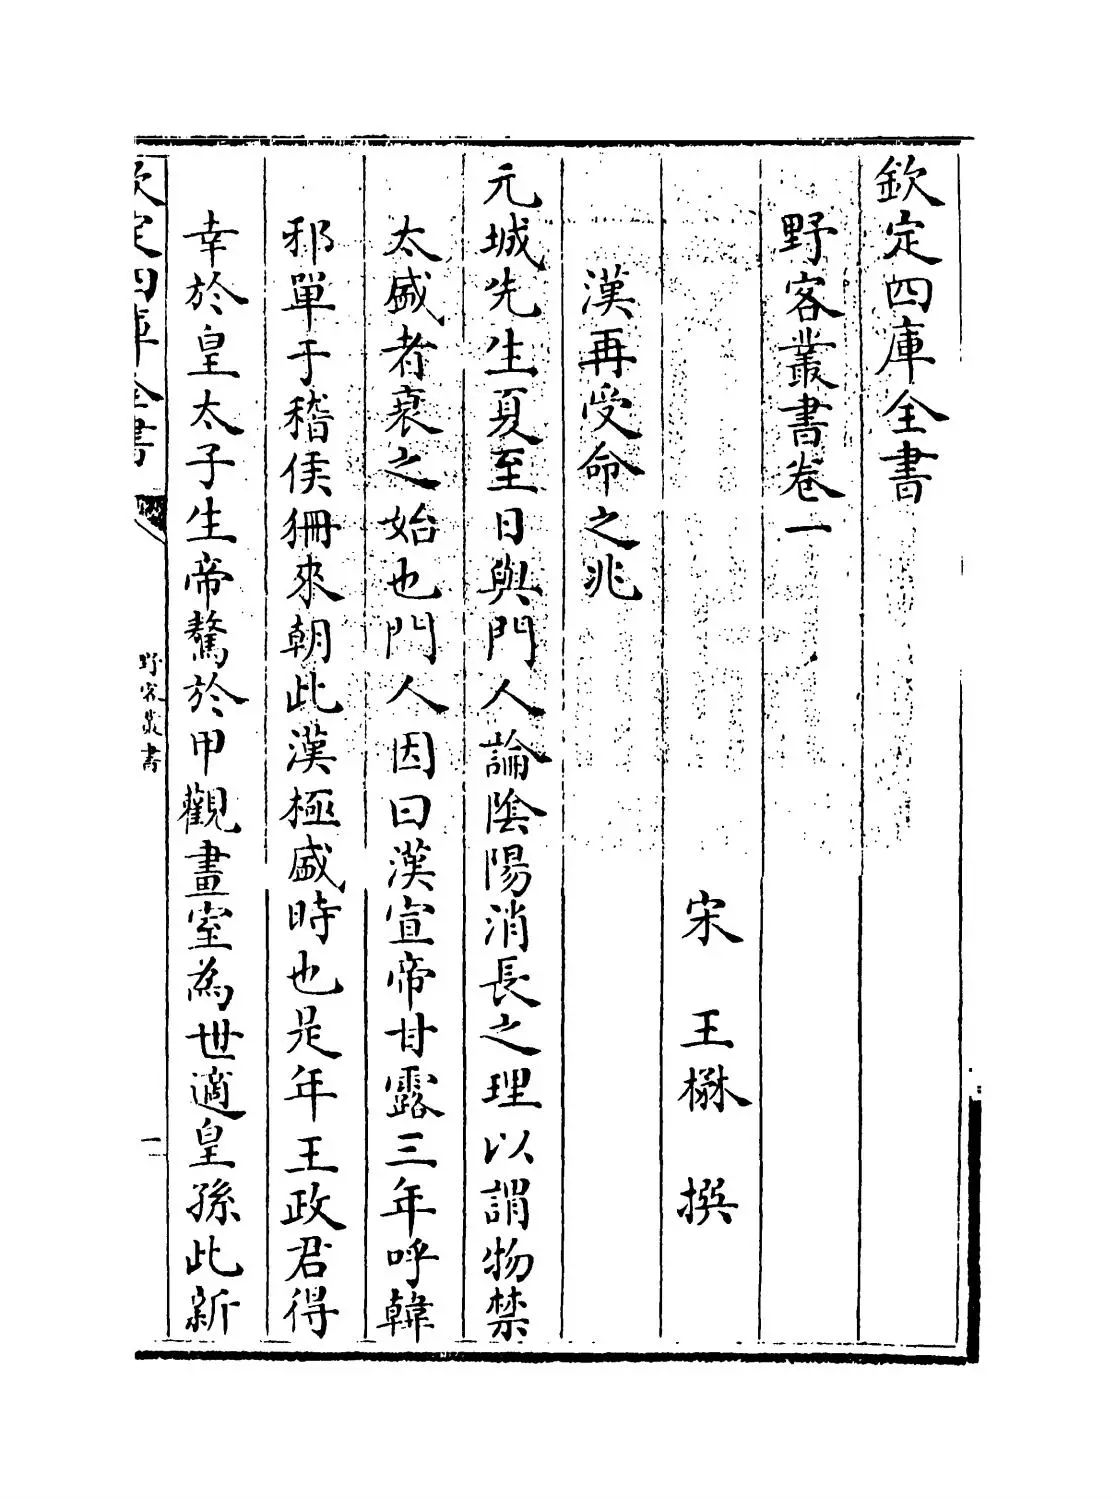 欽定四庫全書
野客叢書卷一
宋 王楙 撰
漢再受命之兆
元城先生夏至日與門人論陰陽消長之理以謂物禁
太盛者衰之始也門人因曰漢宣帝甘露三年呼韓
邪單于稽侯狦來朝此漢極盛時也是年王政君得
幸於皇太子生帝驁於甲觀畫室為世適皇孫此新
欽定四庫全書
野客叢書
一